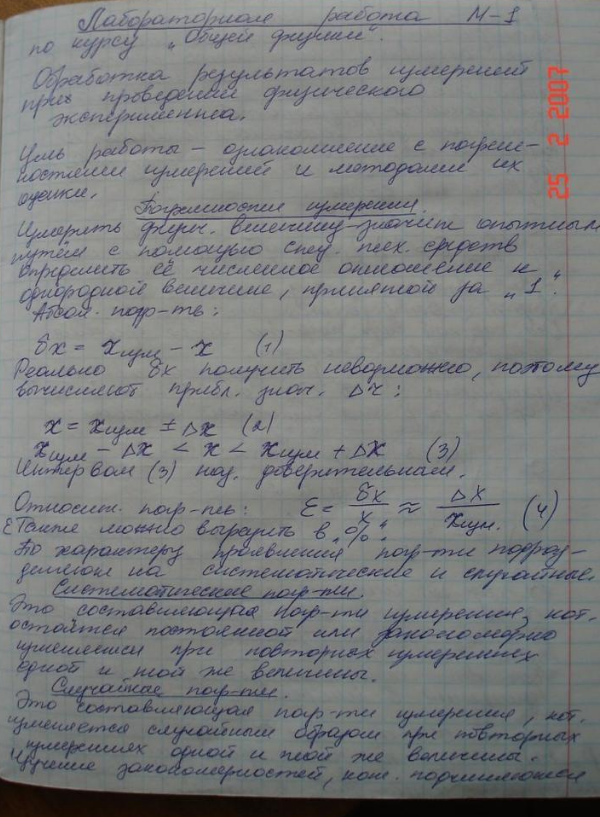 Лабораторная работа М-1
по курсу „Общей физики".
Обработка результатов измерений
при проведении физического
эксперимента.
Цель работы – ознакомление с погреш-
ностями измерений и методами их
оценки.
Погрешности измерения.
Измерить физич. величину значит опытным
путём с помощью спец. тех. средств
определить её численное отношение к
однородной величине, принятой за „1".
Абсол. погр-ть:
δx = xизм – x (1)
Реально δx получить невозможно, поэтому
вычисляют прибл. знач. Δx:
x = xизм ± Δx (2)
xизм – Δx < x < xизм + Δx (3)
Интервал (3) наз. доверительным.
Относит. погр-ть: ε = δx/x ≈ Δx/xизм. (4)
ε также можно выразить в „%".
По характеру проявления погр-ти подраз-
деляют на систематические и случайные.
Систематические погр-ти.
Это составляющая погр-ти измерения, кот.
остаётся постоянной или закономерно
изменяется при повторных измерениях
одной и той же величины.
Случайные погр-ти.
Это составляющая погр-ти измерения, кот.
изменяется случайным образом при повторных
измерениях одной и той же величины.
Изучение закономерностей, кот. подчиняются
25 2 2007